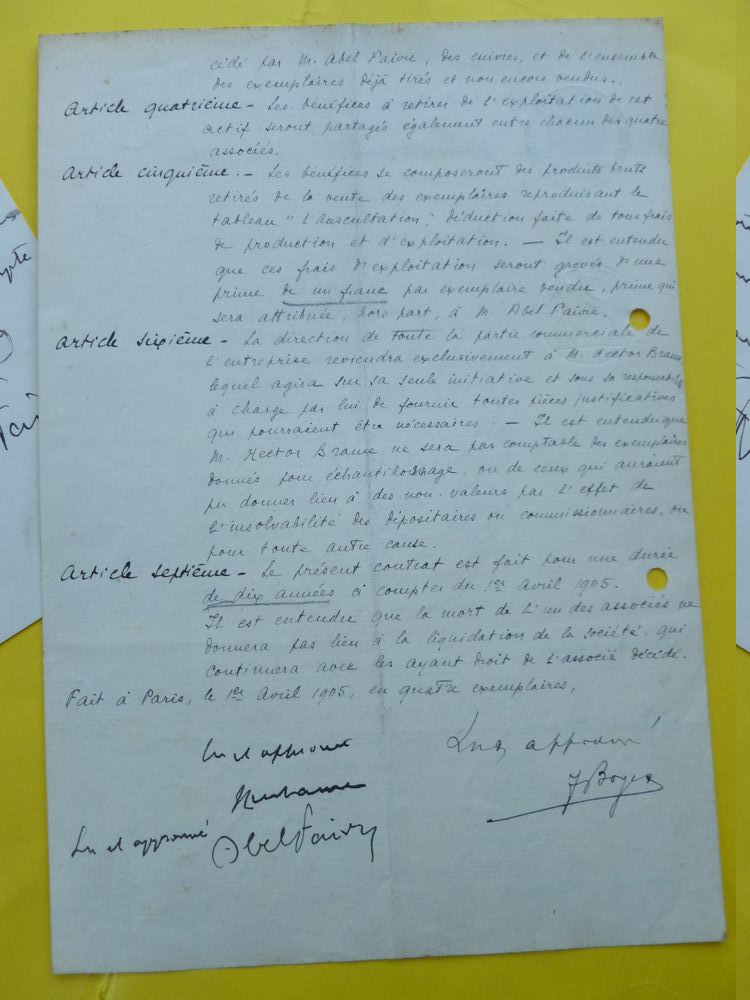 cédé par M. Abel Faivre, des cuivres, et de l'ensemble
des exemplaires déjà tirés et non encore vendus.
Article quatrième - Les bénéfices à retirer de l'exploitation de cet
actif seront partagés également entre chacun des quatre
associés.
Article cinquième. - Les bénéfices se composeront des produits bruts
retirés de la vente des exemplaires reproduisant le
tableau "L'Auscultation", déduction faite de tous frais
de production et d'exploitation. — Il est entendu
que ces frais d'exploitation seront grevés d'une
prime de un franc par exemplaire vendu, prime qui
sera attribuée, hors part, à M. Abel Faivre.
Article sixième - La direction de toute la partie commerciale de
l'entreprise reviendra exclusivement à M. Hector Brame
lequel agira sur sa seule initiative et sous sa responsabilité
à charge par lui de fournir toutes pièces justificatives
qui pourraient être nécessaires. — Il est entendu que
M. Hector Brame ne sera pas comptable des exemplaires
donnés pour échantillonnage, ou de ceux qui auraient
pu donner lieu à des non-valeurs par l'effet de
l'insolvabilité des dépositaires ou commissionnaires, ou
pour toute autre cause.
Article septième - Le présent contrat est fait pour une durée
de dix années à compter du 1er Avril 1905.
Il est entendu que la mort de l'un des associés ne
donnera pas lieu à la liquidation de la société, qui
continuera avec les ayant droit de l'associé décédé.
Fait à Paris, le 1er Avril 1905, en quatre exemplaires,
Lu et approuvé
Lu et approuvé
J Boyer
Lu et approuvé
Abel Faivre